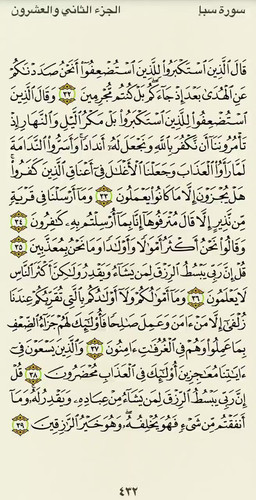 سورة سبإ
الجزء الثاني والعشرون
قَالَ ٱلَّذِينَ ٱسْتَكْبَرُوا۟ لِلَّذِينَ ٱسْتُضْعِفُوٓا۟ أَنَحْنُ صَدَدْنَٰكُمْ
عَنِ ٱلْهُدَىٰ بَعْدَ إِذْ جَآءَكُم بَلْ كُنتُم مُّجْرِمِينَ ٣٢ وَقَالَ ٱلَّذِينَ
ٱسْتُضْعِفُوا۟ لِلَّذِينَ ٱسْتَكْبَرُوا۟ بَلْ مَكْرُ ٱلَّيْلِ وَٱلنَّهَارِ إِذْ
تَأْمُرُونَنَآ أَن نَّكْفُرَ بِٱللَّهِ وَنَجْعَلَ لَهُۥٓ أَندَادًا وَأَسَرُّوا۟ ٱلنَّدَامَةَ
لَمَّا رَأَوُا۟ ٱلْعَذَابَ وَجَعَلْنَا ٱلْأَغْلَٰلَ فِىٓ أَعْنَاقِ ٱلَّذِينَ كَفَرُوا۟
هَلْ يُجْزَوْنَ إِلَّا مَا كَانُوا۟ يَعْمَلُونَ ٣٣ وَمَآ أَرْسَلْنَا فِى قَرْيَةٍ
مِّن نَّذِيرٍ إِلَّا قَالَ مُتْرَفُوهَآ إِنَّا بِمَآ أُرْسِلْتُم بِهِۦ كَٰفِرُونَ ٣٤
وَقَالُوا۟ نَحْنُ أَكْثَرُ أَمْوَٰلًا وَأَوْلَٰدًا وَمَا نَحْنُ بِمُعَذَّبِينَ ٣٥
قُلْ إِنَّ رَبِّى يَبْسُطُ ٱلرِّزْقَ لِمَن يَشَآءُ وَيَقْدِرُ وَلَٰكِنَّ أَكْثَرَ ٱلنَّاسِ
لَا يَعْلَمُونَ ٣٦ وَمَآ أَمْوَٰلُكُمْ وَلَآ أَوْلَٰدُكُم بِٱلَّتِى تُقَرِّبُكُمْ عِندَنَا
زُلْفَىٰٓ إِلَّا مَنْ ءَامَنَ وَعَمِلَ صَٰلِحًا فَأُو۟لَٰٓئِكَ لَهُمْ جَزَآءُ ٱلضِّعْفِ
بِمَا عَمِلُوا۟ وَهُمْ فِى ٱلْغُرُفَٰتِ ءَامِنُونَ ٣٧ وَٱلَّذِينَ يَسْعَوْنَ فِىٓ
ءَايَٰتِنَا مُعَٰجِزِينَ أُو۟لَٰٓئِكَ فِى ٱلْعَذَابِ مُحْضَرُونَ ٣٨ قُلْ
إِنَّ رَبِّى يَبْسُطُ ٱلرِّزْقَ لِمَن يَشَآءُ مِنْ عِبَادِهِۦ وَيَقْدِرُ لَهُۥ وَمَآ
أَنفَقْتُم مِّن شَىْءٍ فَهُوَ يُخْلِفُهُۥ وَهُوَ خَيْرُ ٱلرَّٰزِقِينَ ٣٩
٤٣٢